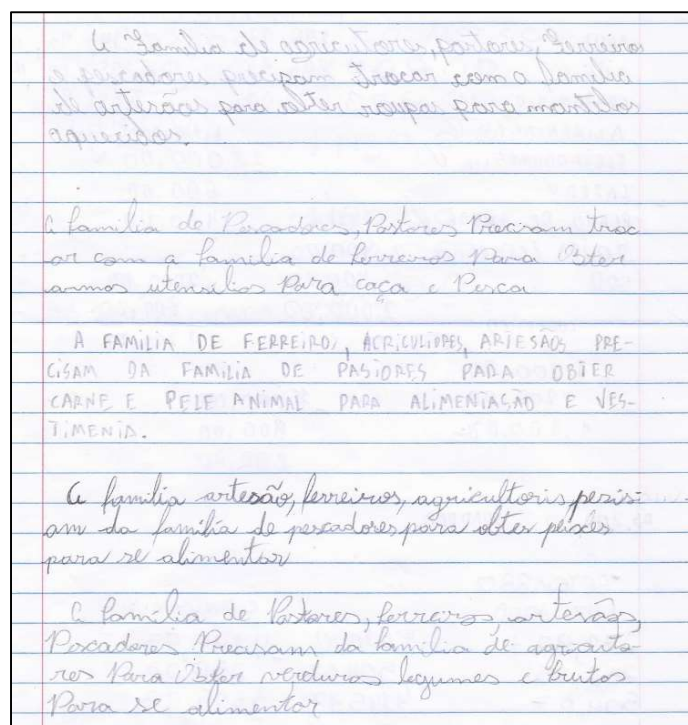 A Família de agricultores, pastores, Ferreiros
e pescadores precisam trocar com a família
de artesãos para obter roupas para mantelos
aqueridos.
A família de Pescadores, Pastores Precisam troc
ar com a família de ferreiros Para Obter
armas utensílios Para caça e Pesca
A FAMÍLIA DE FERREIROS, AGRICULTORES, ARTESÃOS PRE-
CISAM DA FAMÍLIA DE PASTORES PARA OBTER
CARNE E PELE ANIMAL PARA ALIMENTASÃO E VES-
TIMENTA.
A família artesão, ferreiros, agricultoris, peris-
am da família de pescadores para obter peixes
para se alimentar
A família de Pastores, ferreiros, artesãos,
Pescadores Precisam da família de agriculto-
res Para Obter verduras legumes e frutos
Para se alimentar